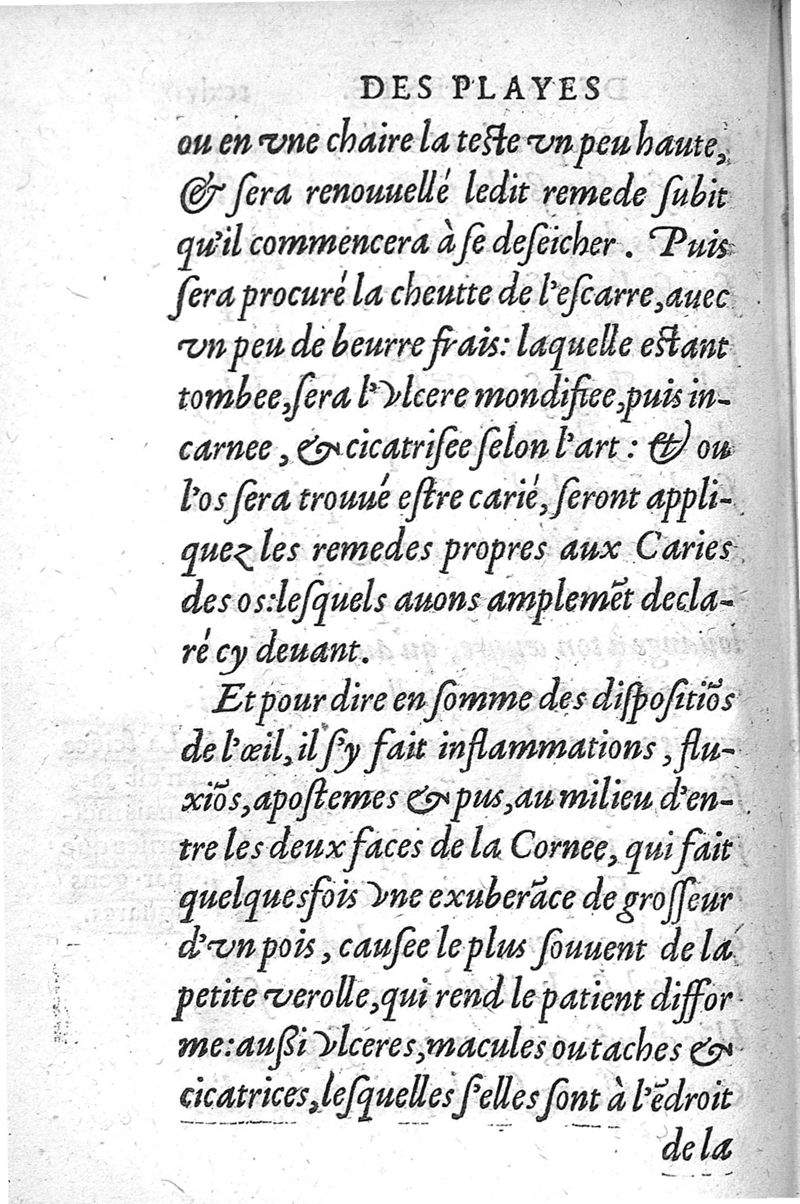 DES PLAYES
ou en vne chaire la teste vn peu haute,
& ſera renouuellé ledit remede ſubit
qu'il commencera à ſe deſeicher. Puis
ſera procuré la cheutte de l'eſcarre, auec
vn peu de beurre frais: laquelle estant
tombee, ſera l'vlcere mondifiee, puis in-
carnee, & cicatriſee ſelon l'art: & ou
l'os ſera trouué eſtre carié, ſeront appli-
quez les remedes propres aux Caries
des os: leſquels auons amplemẽt decla-
ré cy deuant.
Et pour dire en ſomme des diſpoſitiõs
de l'œil, il ſ'y fait inflammations, flu-
xiõs, apoſtemes & pus, au milieu d'en-
tre les deux faces de la Cornee, qui fait
quelquesfois vne exuberãce de groſſeur
d'vn pois, cauſee le plus ſouuent de la
petite verolle, qui rend le patient diffor
me: außi vlceres, macules ou taches &
cicatrices, leſquelles ſ'elles ſont à l'ẽdroit
de la